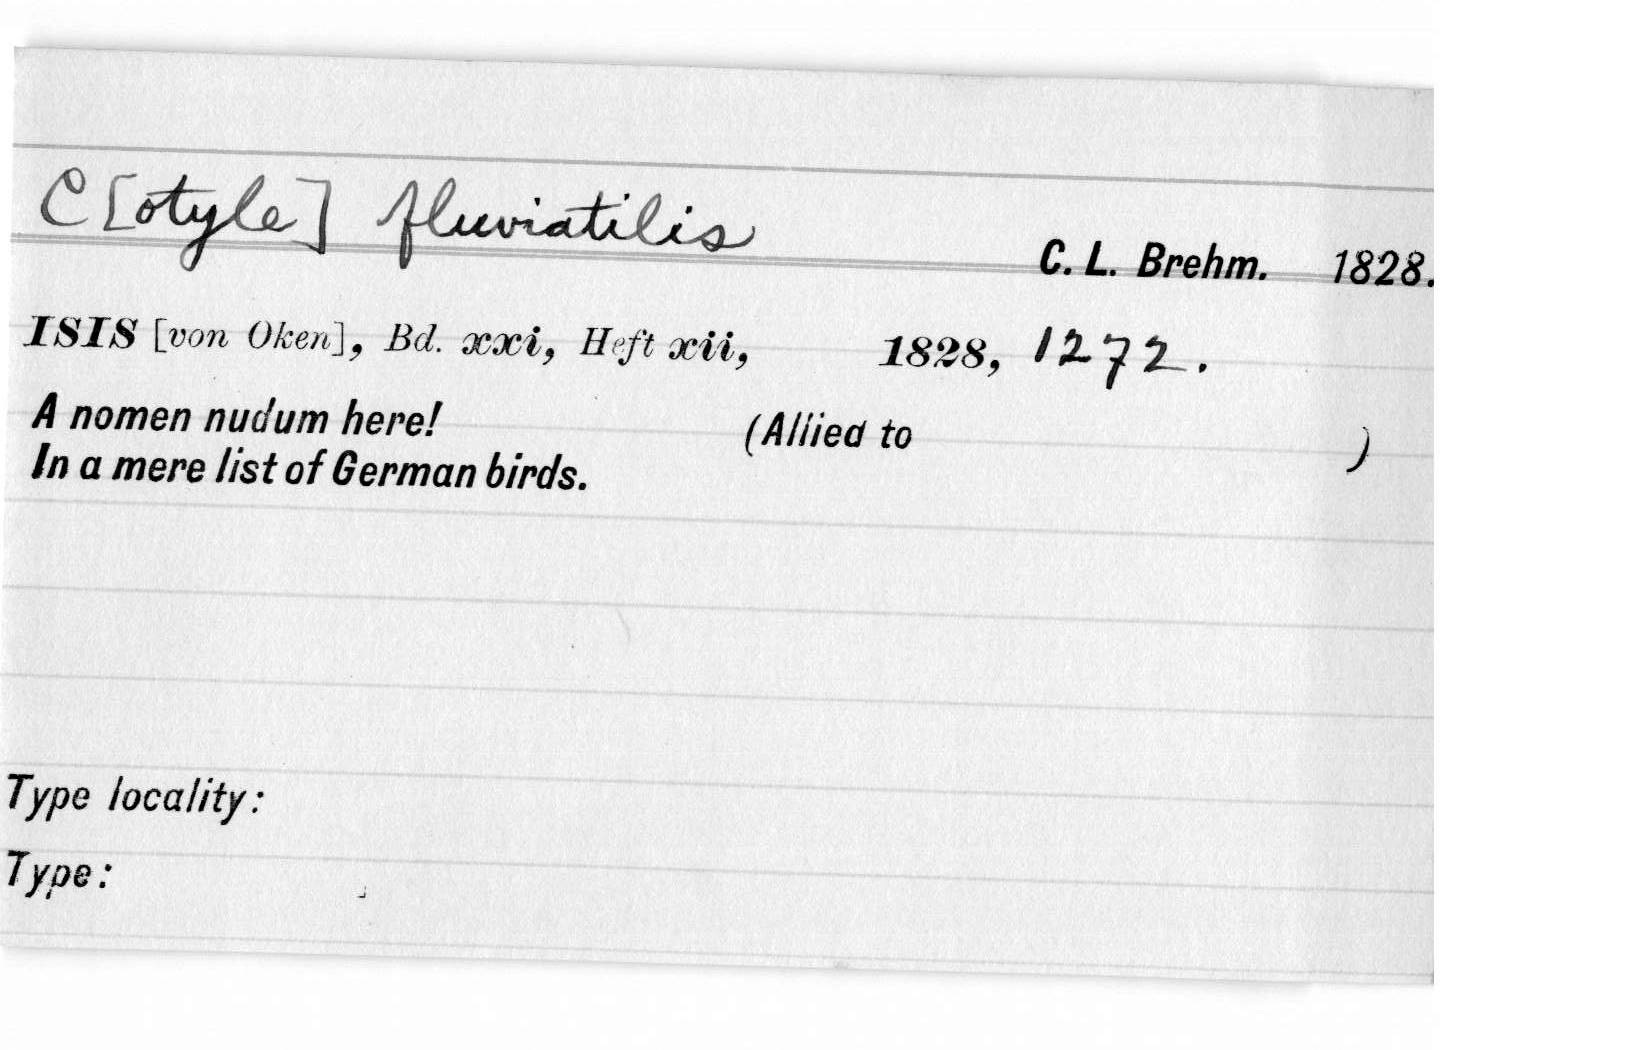 C[otyle] fluviatilis
C. L. Brehm. 1828.
ISIS [von Oken], Bd. xxi, Heft xii, 1828, 1272.
A nomen nudum here! (Allied to )
In a mere list of German birds.
Type locality:
Type: